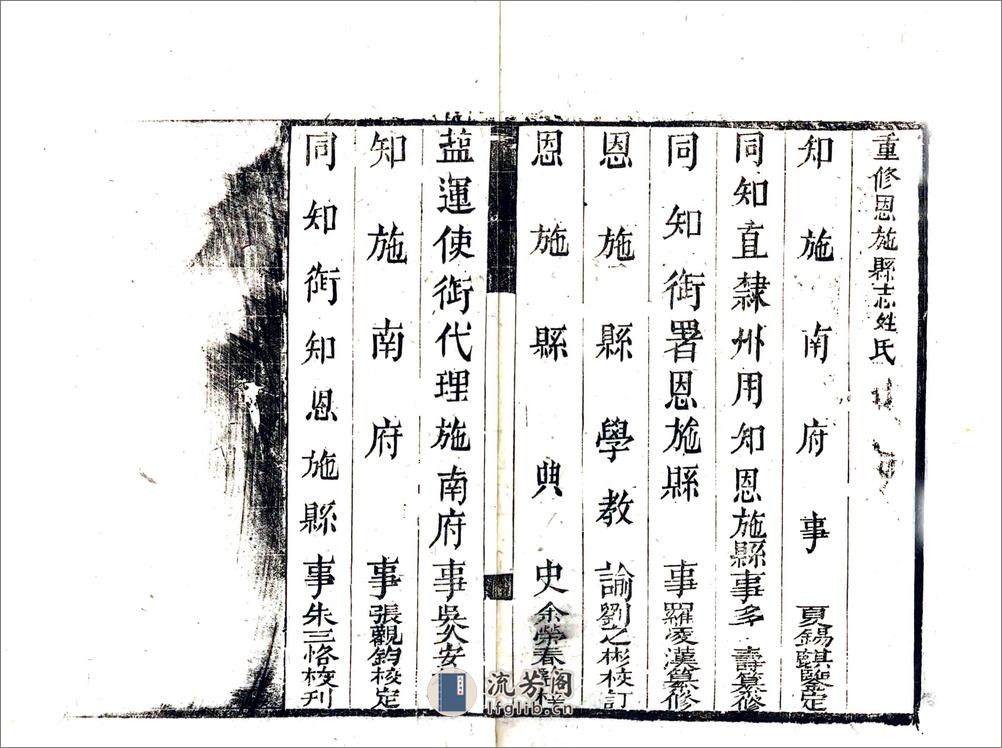 重修恩施縣志姓氏
知施南府事夏錫麒鑒定
同知直隸州用知恩施縣事多壽纂修
同知銜署恩施縣事羅凌漢纂修
恩施縣學教諭劉之彬校訂
恩施縣典史余榮春
盐運使銜代理施南府事吳
知施南府事張觀鈞核定
同知銜知恩施縣事朱三恪校刊
流芳阁
lfglib.cn